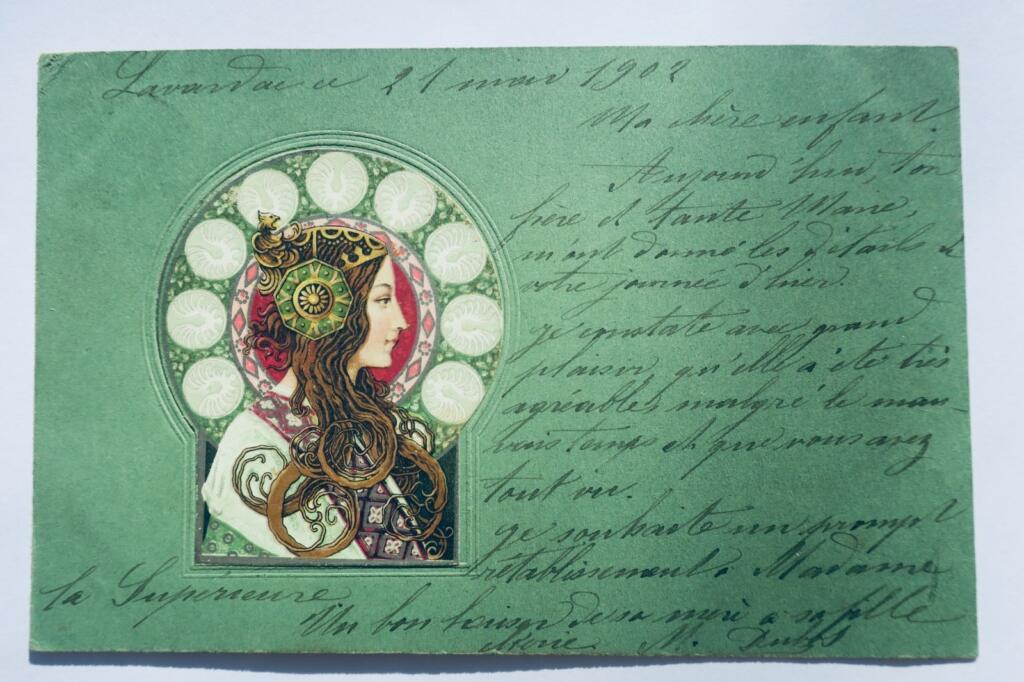 Lavardac ce 21 mai 1902
Ma chère enfant.
Aujourd'hui, ton
père et tante Marie,
m'ont donné les détails de
votre journée d'hier.
Je constate avec grand
plaisir, qu'elle a été très
agréable, malgré le mau-
vais temps et que vous avez
tout vu.
Je souhaite un prompt
rétablissement à Madame
la Supérieure
Un bon baiser de sa mère à sa fille
M.